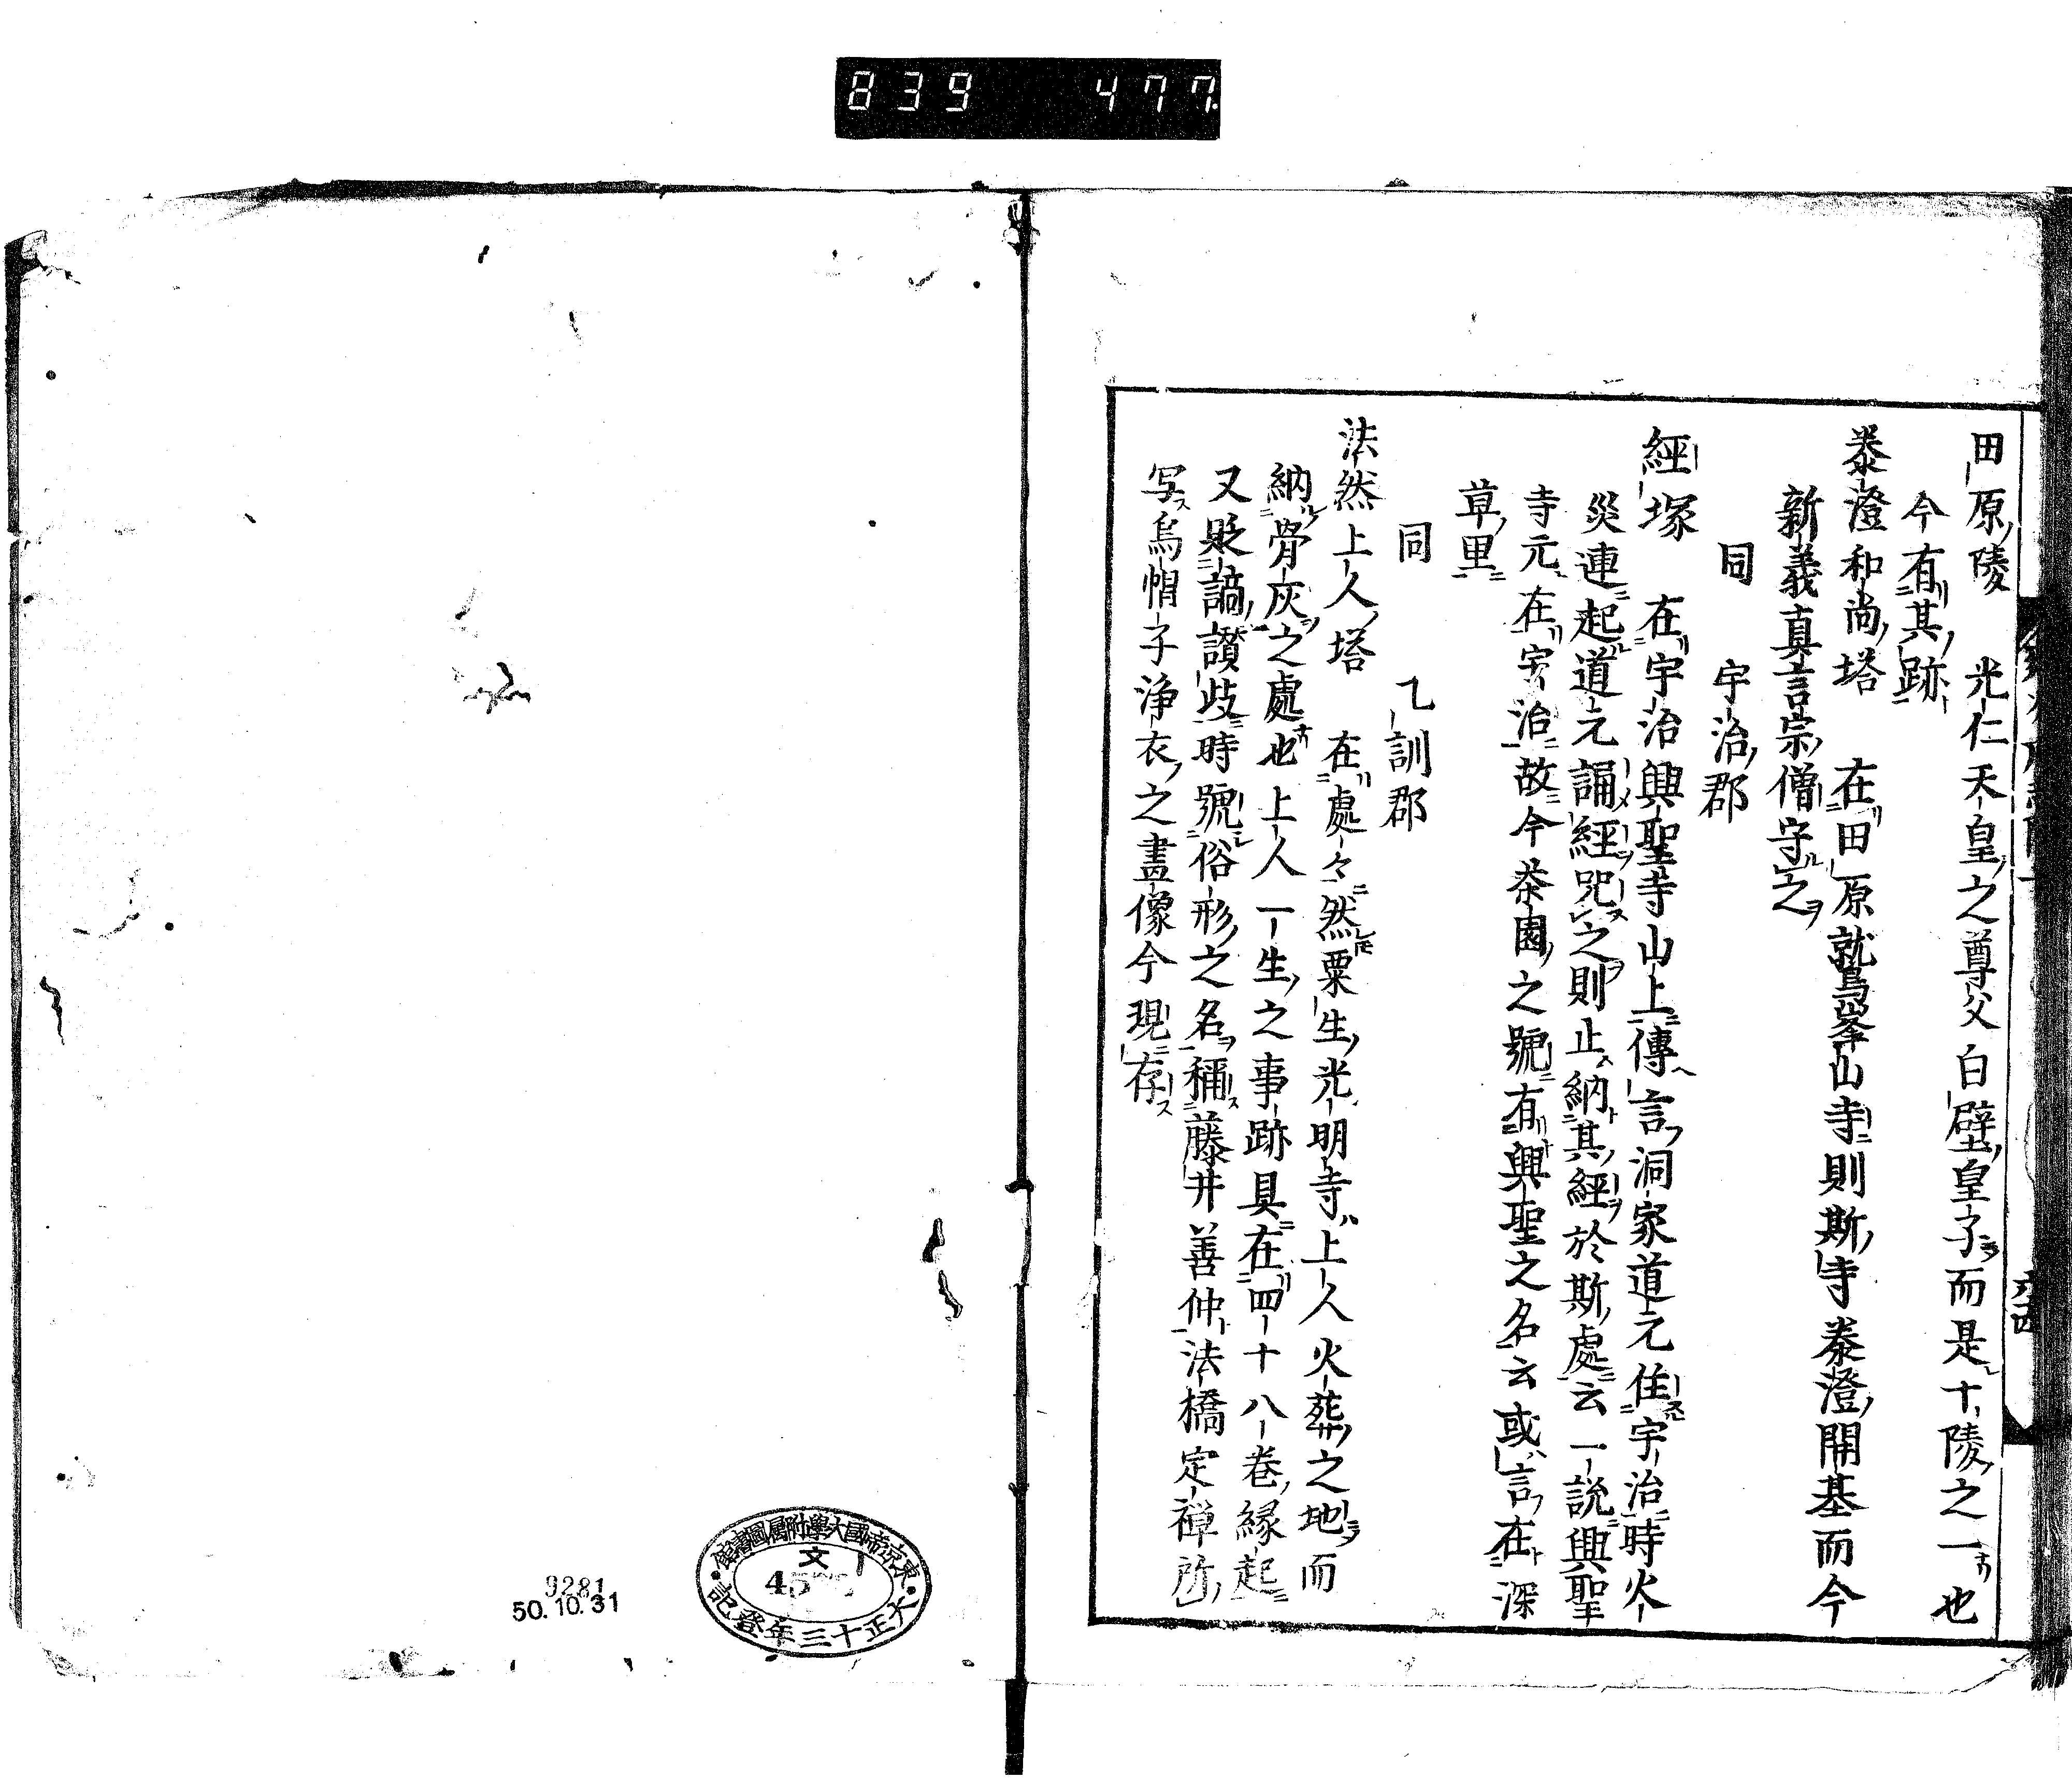 839 477.
田原陵 光仁天皇之尊父白壁皇子而是十陵之一也
今有其跡
泰澄和尚塔 在田原就鳥峯山寺則斯寺泰澄開基而今
新義真言宗僧守之
同 宇治郡
經塚 在宇治興聖寺山上傳言洞家道元住宇治時火
災連起道元誦經咒之則止納其經於斯處云一說興聖
寺元在宇治故今茶園之號有興聖之名云或言在深
草里
同 乙訓郡
法然上人塔 在處々然粟生光明寺上人火葬之地而
納骨灰之處也上人一生之事跡具在四十八卷縁起
又貶謫讃歧時號俗形之名稱藤井善仲法橋定禅所
写烏帽子浄衣之畫像今現存
東京帝國大學附屬圖書館
文
45
大正十三年登記
9281
50.10.31